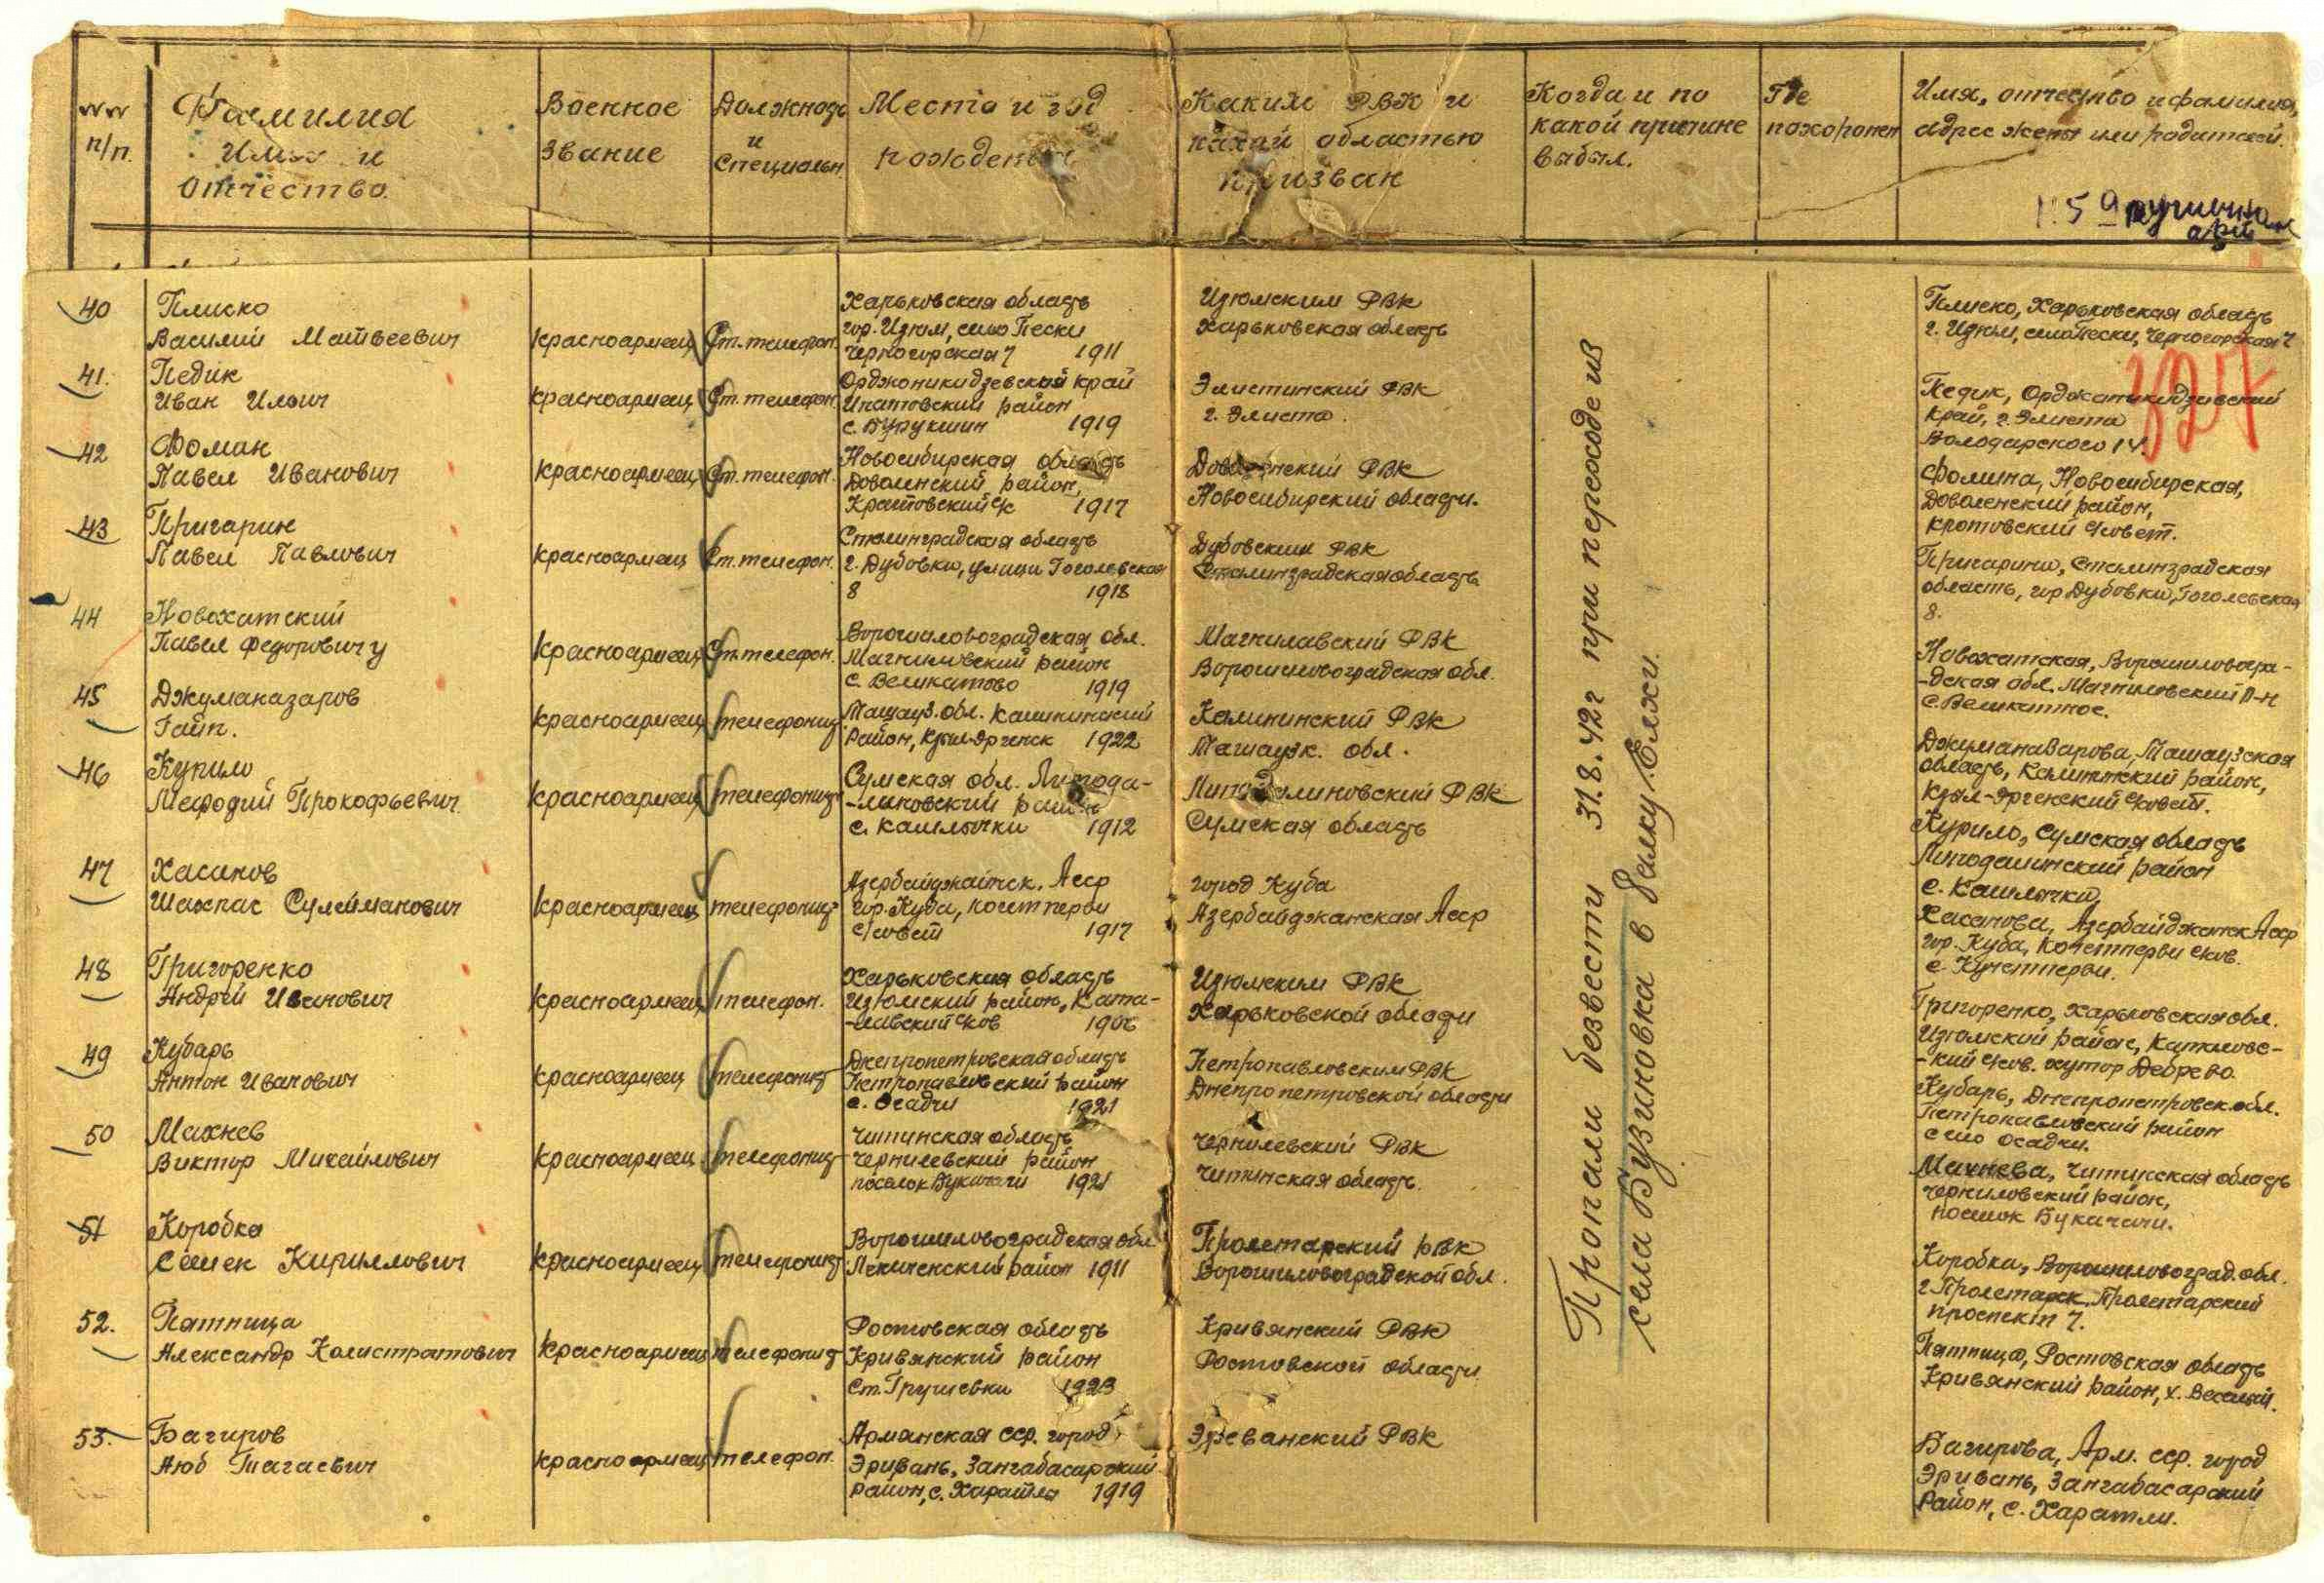 №№ п/п.
Фамилия Имя и Отчество.
Военное звание
Должность и Специальн.
Место и год рождения
Каким РВК и какой областью призван
Когда и по какой причине выбыл.
Где похоронен
Имя, отчество и фамилия, адрес жены или родителей.
40
Плиско
Василий Матвеевич
красноармеец
Ст. телефон.
Харьковская область
гор. Изюм, село Пески
Черногорская 7 1911
Изюмским РВК
Харьковская область
Плиско, Харьковская область
г. Изюм, село Пески, Черногорская 7
41.
Педик
Иван Ильич
красноармеец
Ст. телефон.
Орджоникидзевский край
Ипатовский район
с. Бурукшин 1919
Элистинский РВК
г. Элиста.
Педик, Орджоникидзевский
край, г. Элиста
Володарского 14.
42
Фомин
Павел Иванович
красноармеец
Ст. телефон.
Новосибирская область
Доволенский район,
Кротовский с/с 1917
Доволенский РВК
Новосибирский области.
Фомина, Новосибирская,
Доволенский район,
Кротовский с/совет.
43
Пригарин
Павел Павлович
красноармеец
Ст. телефон.
Сталинградская область
г. Дубовка, улица Гоголевская
8 1918
Дубовским РВК
Сталинградская область
Пригарина, Сталинградская
область, гор Дубовка, Гоголевская
8.
44
Новохатский
Павел Федорович
красноармеец
Ст. телефон.
Ворошиловоградская обл.
1919
РВК
Ворошиловоградская обл.
Новохатская, Ворошиловогра-
-дская обл. р-н
45
Джуманазаров
Гаип.
красноармеец
телефонист
Ташауз. обл. Калининский
район, 1922
Калининский РВК
Ташаузк. обл.
Джуманазарова, Ташаузская
область, Калининский район,
46
Курило
Мефодий Прокофьевич
красноармеец
телефонист
Сумская обл. Липода-
-линовский район
с. Кашлычки 1912
Липодолиновский РВК
Сумская область
Курило, Сумская область
Липодалинский район
с. Кашлычки,
47
Хасанов
Шахпас Сулейманович
красноармеец
телефонист
Азербайджанск. Асср
гор. Куба,
с/совет 1917
город Куба
Азербайджанская Асср
Хасанова, Азербайджанск Асср
гор. Куба,
48
Григоренко
Андрей Иванович
красноармеец
телефон.
Харьковская область
Изюмский район, Кама-
-лавский с/сов
Изюмским РВК
Харьковской области
Григоренко, Харьковская обл.
Изюмский район,
-кий с/сов. хутор
49
Кубарь
Антон Иванович
красноармеец
телефонист
Днепропетровская область
Петропавловский район
с. Осадчи 1921
Петропавловским РВК
Днепропетровской области
Кубарь, Днепропетровск. обл.
Петропавловский район
село Осадчи.
50
Махнев
Виктор Михайлович
красноармеец
телефонист
Читинская область
Чернилевский район
поселок Букачачи 1921
Чернилевский РВК
Читинская область.
Махнева, Читинская область
Черниловский район,
поселок Букачачи.
51
Коробка
Семен Кириллович
красноармеец
телефонист
Ворошиловоградская обл
район 1911
Пролетарский РВК
Ворошиловоградской обл.
Коробка, Ворошиловоград. обл.
г Пролетарск, Пролетарский
проспект 7.
52.
Пятница
Александр Калистратович
красноармеец
телефонист
Ростовская область
Кривянский район
Ст. Грушевка 1923
Кривянский РВК
Ростовской области
Пятница, Ростовская область
Кривянский район, х. Веселый.
53.
Багиров
Аюб Тагаевич
красноармеец
телефон.
Армянская сср. город
Эривань, Зангабасарский
район, с. Харатлы 1919
Эреванский РВК
Багирова, Арм. сср. город
Эривань, Зангабасарский
район, с. Харатлы.
Пропали безвести 31.8.42г при переходе из
села Бузиновка в балку Еляхи.